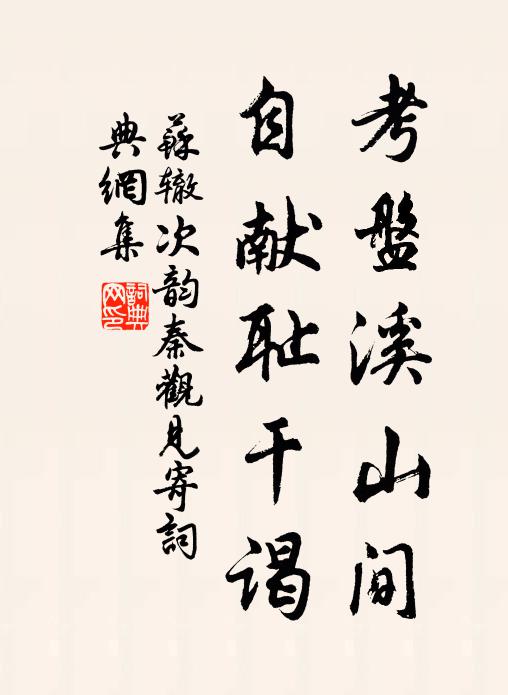 考盤溪山间
自献耻干谒
蘇辙次韵秦觀見寄詞
典網集
詞典网印